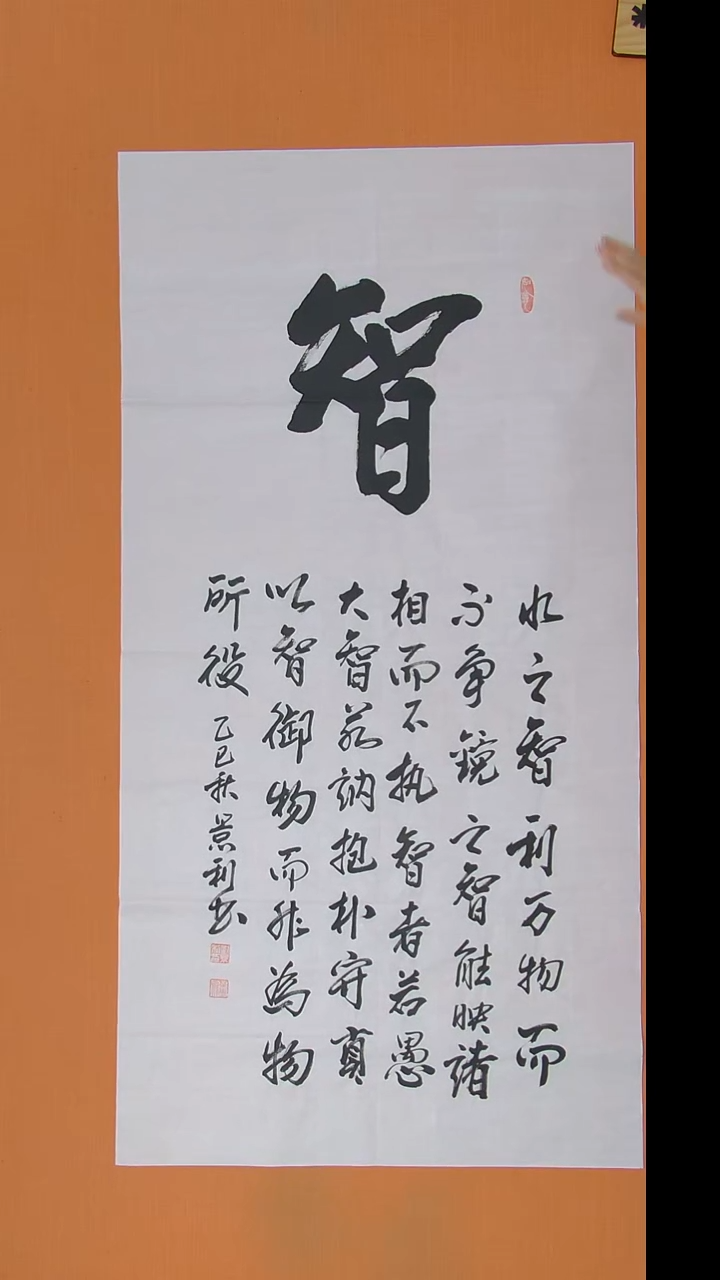 智
水之智利万物而
不争鏡之智能映諸
相而不执智者若愚
大智若訥抱朴守真
以智御物而非為物
所役
乙巳秋景利书